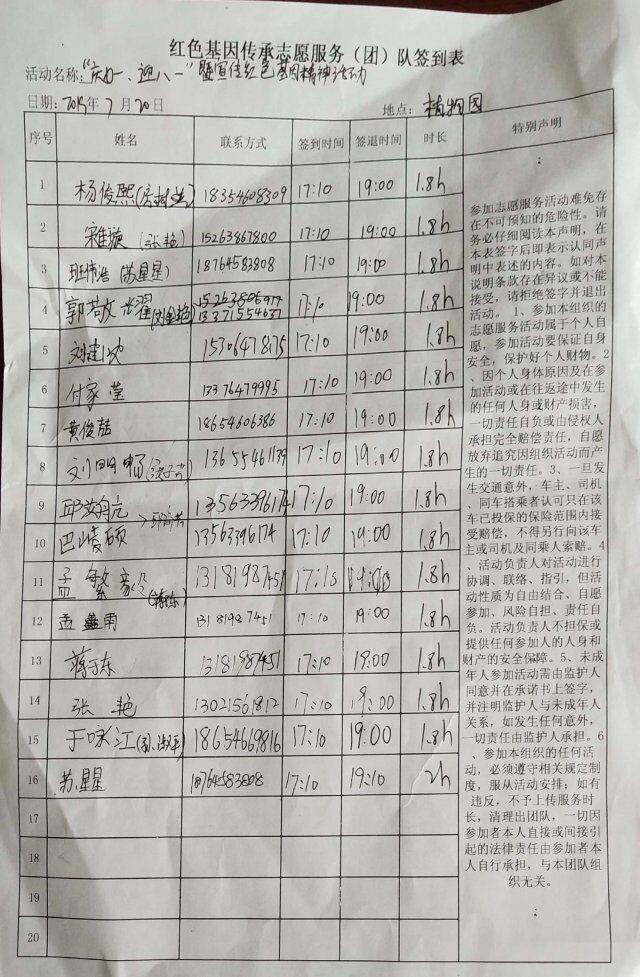 红色基因传承志愿服务（团）队签到表
活动名称："庆七一、迎八一"暨宣传红色基因精神活动
日期：2019年7月20日 地点：植物园
序号 姓名 联系方式 签到时间 签退时间 时长 特别声明
1 杨俊熙 18354608309 17:10 19:00 1.8h
2 (张艳) 15263867800 17:10 19:00 1.8h
3 班伟浩(苏星星) 18764583808 17:10 19:00 1.8h
4 郭芮 17:10 19:00 1.8h
5 刘建 17:10 19:00 1.8h
6 付家莹 13376479995 17:10 19:00 1.8h
7 黄俊喆 18654606386 17:10 19:00 1.8h
8 刘 13655461139 17:10 19:00 1.8h
9 邱 13563396174 17:10 19:00 1.8h
10 巴崚硕 13563396174 17:10 19:00 1.8h
11 孟繁 13181987451 17:10 19:00 1.8h
12 孟鑫雨 13181987451 17:10 19:00 1.8h
13 蒋于东 13181987451 17:10 19:00 1.8h
14 张艳 13021561812 17:10 19:00 1.8h
15 于咏江 18654669816 17:10 19:00 1.8h
16 苏星星 18764583808 17:10 19:10 2h
17
18
19
20
：
参加志愿服务活动难免存
在不可预知的危险性。请
务必仔细阅读本声明，在
本表签字后即表示认同声
明中表述的内容。如对本
说明条款存在异议或不能
接受，请拒绝签字并退出
活动。 1、参加本组织的
志愿服务活动属于个人自
愿，参加活动要保证自身
安全，保护好个人财物。2
、因个人身体原因及在参
加活动或在往返途中发生
的任何人身或财产损害，
一切责任自负或由侵权人
承担完全赔偿责任，自愿
放弃追究因组织活动而产
生的一切责任。3、一旦发
生交通意外，车主、司机
、同车搭乘者认可只在该
车已投保的保险范围内接
受赔偿，不得另行向该车
主或司机及同乘人索赔。4
、活动负责人对活动进行
协调、联络、指引，但活
动性质为自由结合、自愿
参加、风险自担、责任自
负。活动负责人不担保或
提供任何参加人的人身和
财产的安全保障。5、未成
年人参加活动需由监护人
同意并在承诺书上签字，
并注明监护人与未成年人
关系，如发生任何意外，
一切责任由监护人承担。6
、参加本组织的任何活
动，必须遵守相关规定制
度，服从活动安排；如有
违反，不予上传服务时
长，清理出团队，一切因
参加者本人直接或间接引
起的法律责任由参加者本
人自行承担，与本团队组
织无关。
：